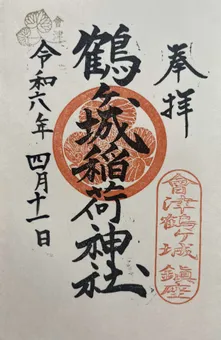 奉拝
會津鶴ヶ城鎮座
鶴ヶ城稲荷神社
令和六年 四月十一日
會津